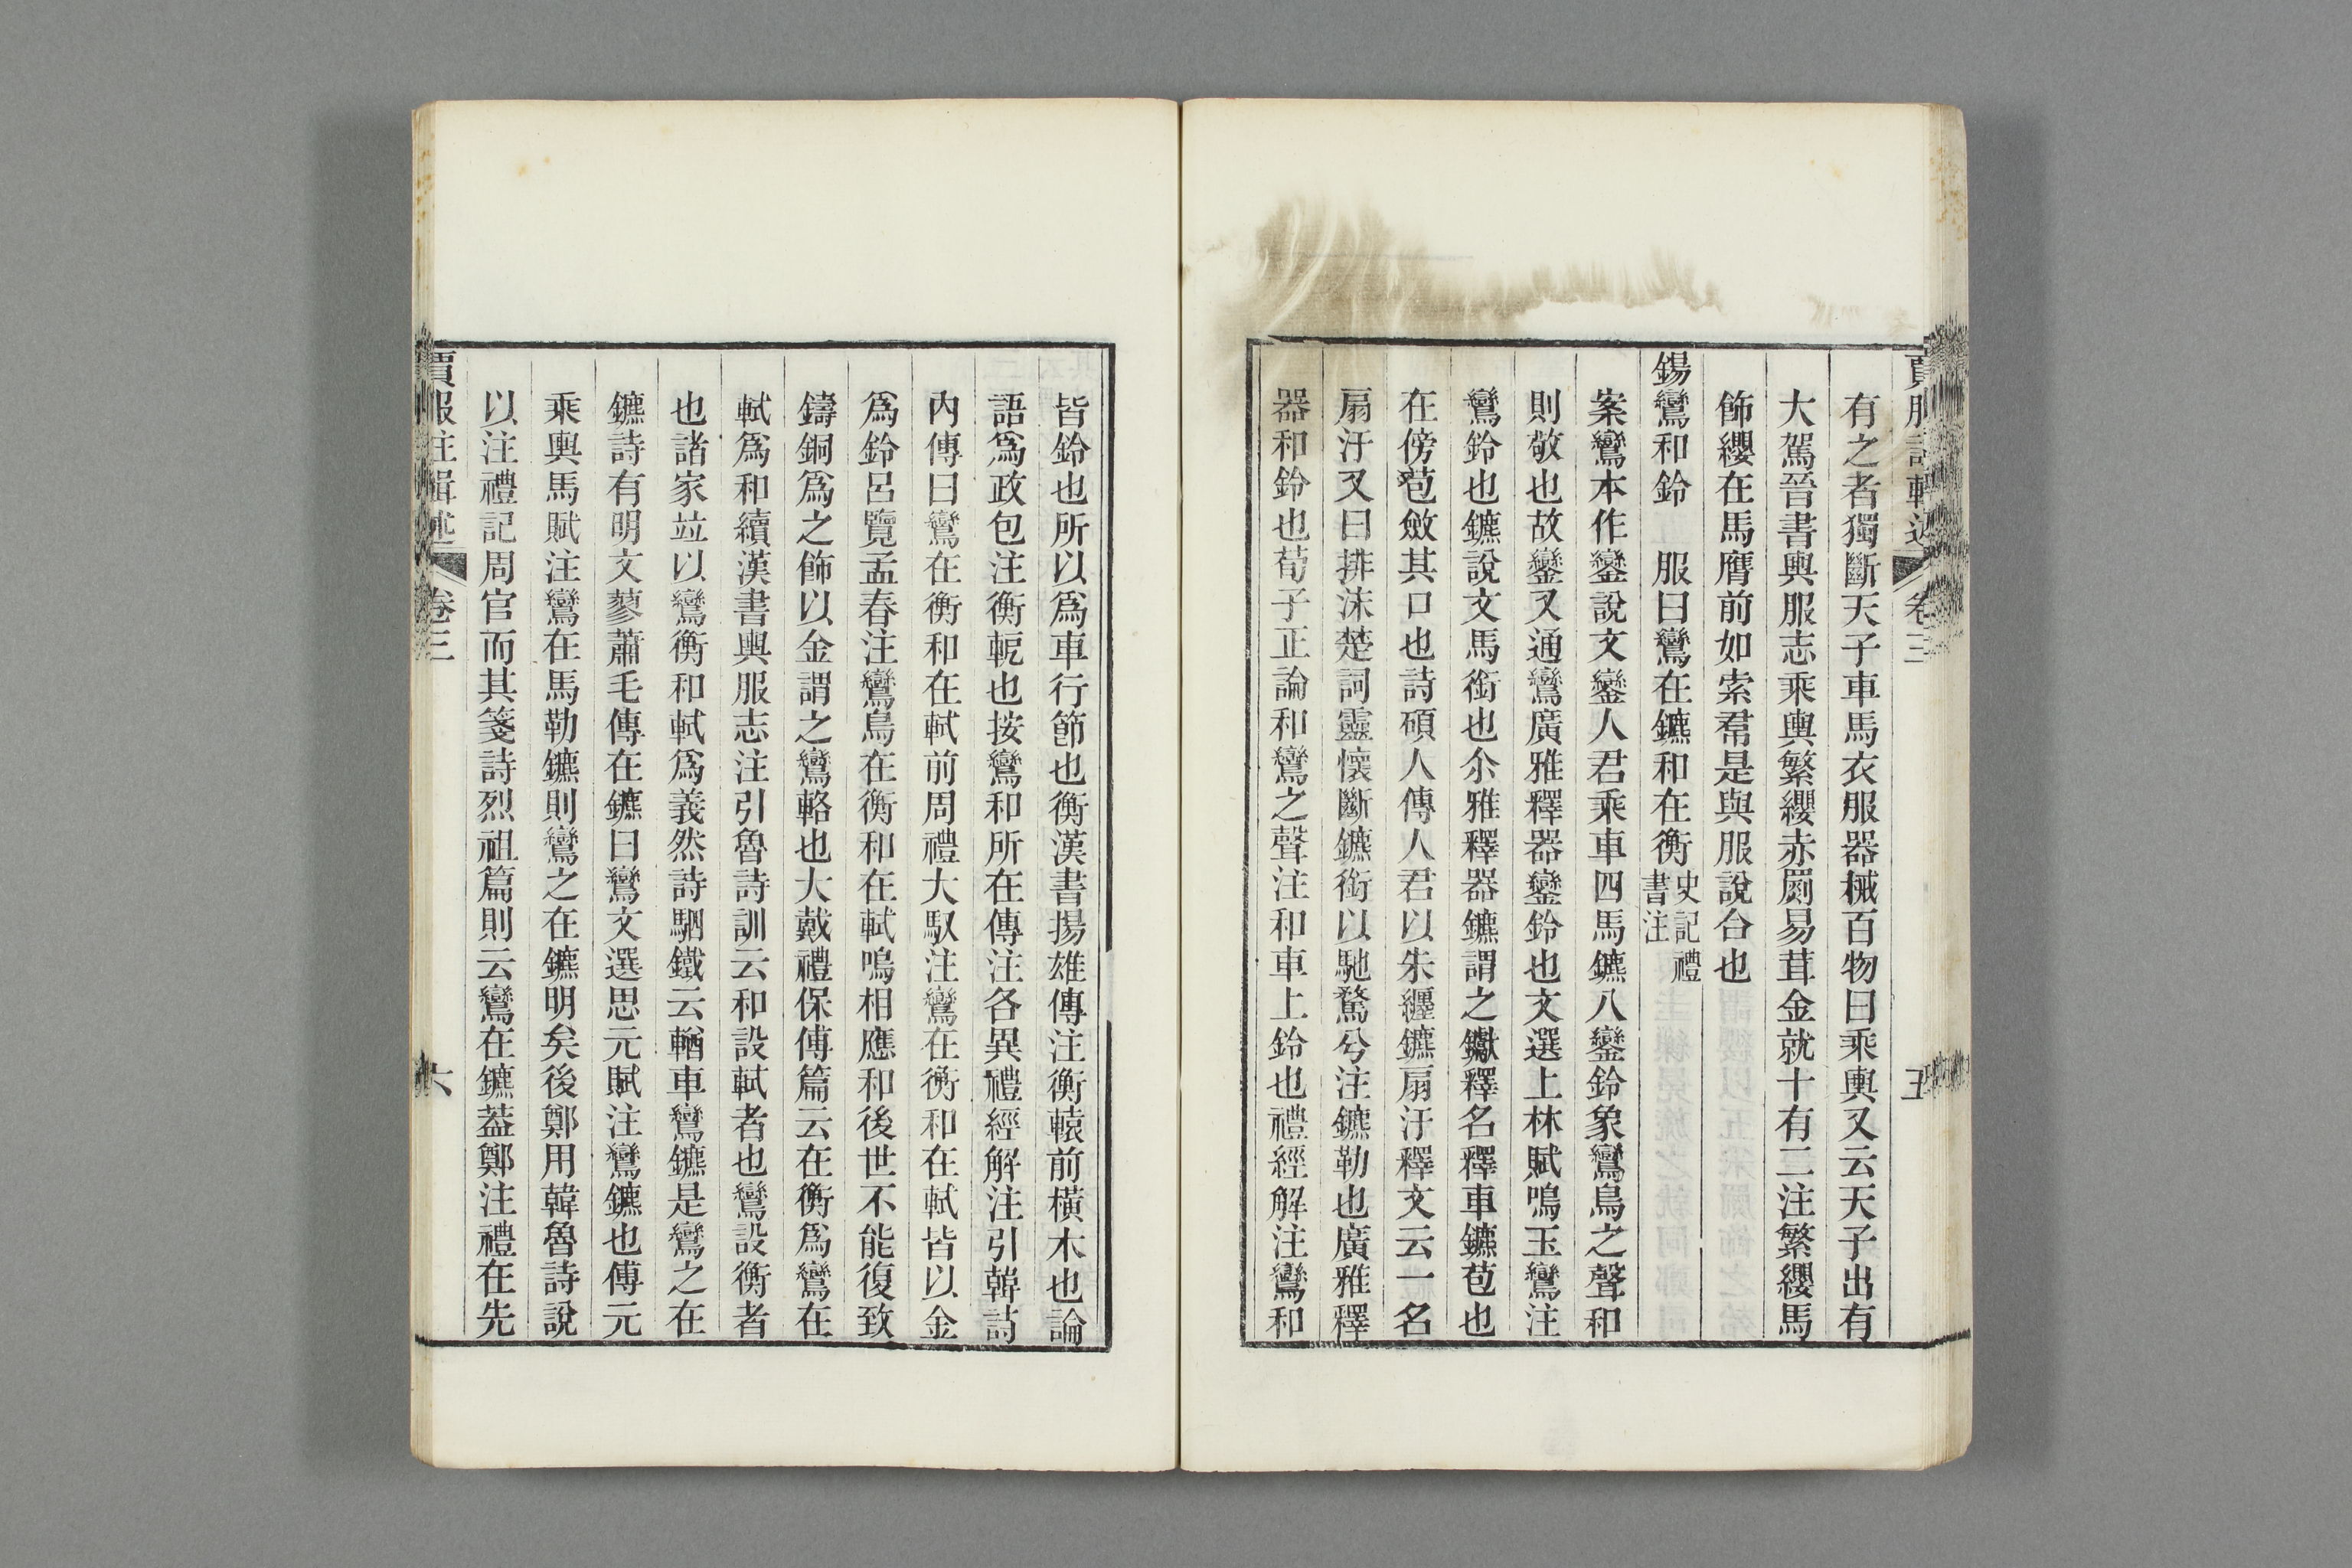 賈服注輯述 卷三 五
有之者獨斷天子車馬衣服器械百物曰乘輿又云天子出有
大駕晉書輿服志乘輿繁纓赤罽易茸金就十有二注繁纓馬
飾纓在馬膺前如索帬是與服說合也
鍚鸞和鈴 服曰鸞在鑣和在衡史記禮書注
案鸞本作鑾說文鑾人君乘車四馬鑣八鑾鈴象鸞鳥之聲和
則敬也故鑾又通鸞廣雅釋器鑾鈴也文選上林賦鳴玉鸞注
鸞鈴也鑣說文馬銜也尒雅釋器鑣謂之钀釋名釋車鑣苞也
在傍苞斂其口也詩碩人傳人君以朱纏鑣扇汗釋文云一名
扇汗又曰排沫楚詞靈懷斷鑣銜以馳騖兮注鑣勒也廣雅釋
器和鈴也荀子正論和鸞之聲注和車上鈴也禮經解注鸞和
皆鈴也所以爲車行節也衡漢書揚雄傳注衡轅前橫木也論
語爲政包注衡軛也按鸞和所在傳注各異禮經解注引韓詩
內傳曰鸞在衡和在軾前周禮大馭注鸞在衡和在軾皆以金
爲鈴呂覽孟春注鸞鳥在衡和在軾鳴相應和後世不能復致
鑄銅爲之飾以金謂之鸞輅也大戴禮保傅篇云在衡爲鸞在
軾爲和續漢書輿服志注引魯詩訓云和設軾者也鸞設衡者
也諸家竝以鸞衡和軾爲義然詩駟鐵云輶車鸞鑣是鸞之在
鑣詩有明文蓼蕭毛傳在鑣曰鸞文選思元賦注鸞鑣也傅元
乘輿馬賦注鸞在馬勒鑣則鸞之在鑣明矣後鄭用韓魯詩說
以注禮記周官而其箋詩烈祖篇則云鸞在鑣葢鄭注禮在先
賈服注輯述 卷三 六